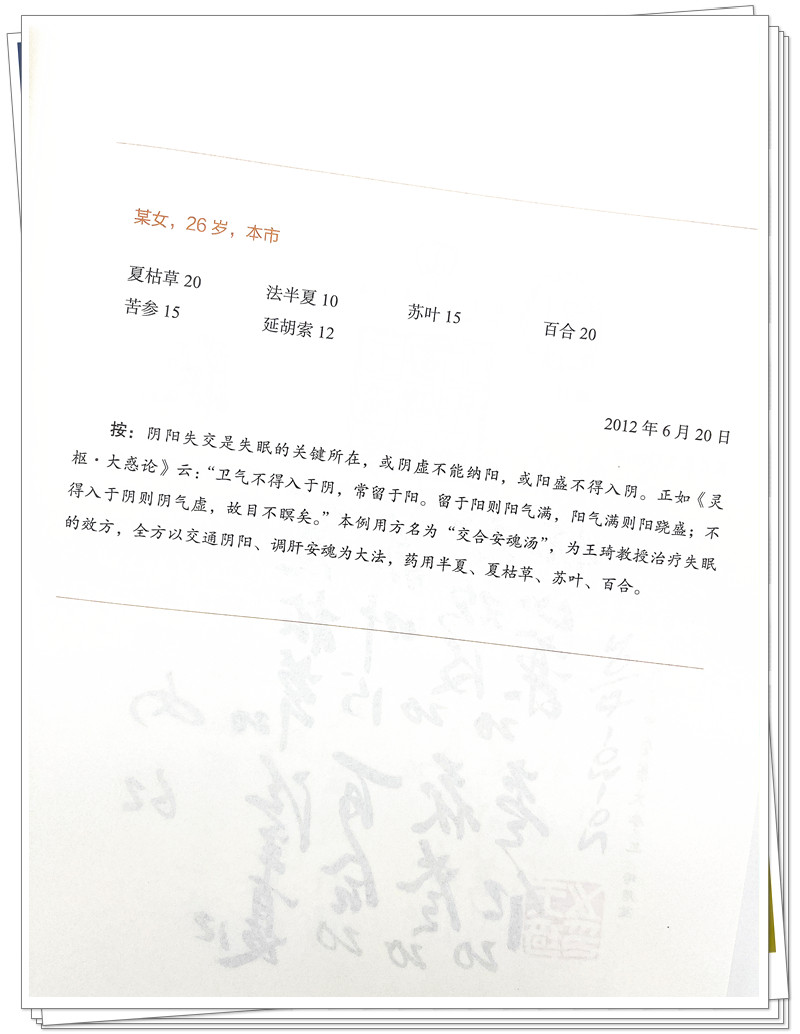 某女，26岁，本市
夏枯草 20 法半夏 10 苏叶 15 百合 20
苦参 15 延胡索 12
2012 年 6 月 20 日
按：阴阳失交是失眠的关键所在，或阴虚不能纳阳，或阳盛不得入阴。正如《灵
枢·大惑论》云：“卫气不得入于阴，常留于阳。留于阳则阳气满，阳气满则阳跷盛；不
得入于阴则阴气虚，故目不瞑矣。”本例用方名为“交合安魂汤”，为王琦教授治疗失眠
的效方，全方以交通阴阳、调肝安魂为大法，药用半夏、夏枯草、苏叶、百合。